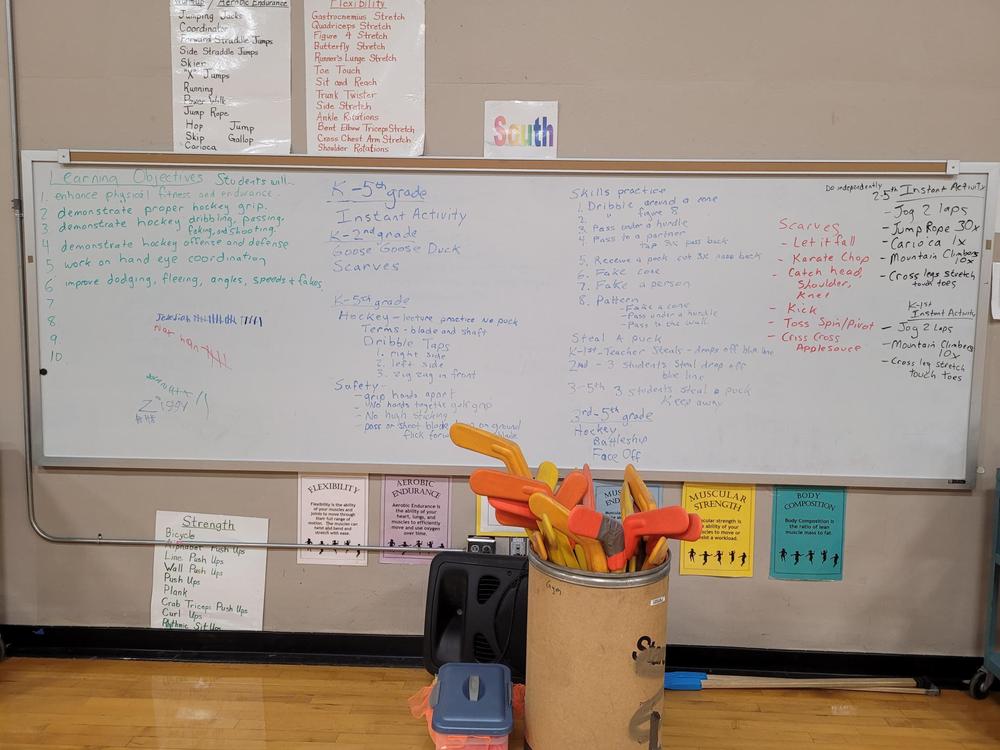 Warmup / Aerobic Endurance
Jumping Jacks
Coordinator
Forward Straddle Jumps
Side Straddle Jumps
Skier
"X" Jumps
Running
Power Walk
Jump Rope
Hop Jump
Skip Gallop
Carioca
Flexibility
Gastrocnemius Stretch
Quadriceps Stretch
Figure 4 Stretch
Butterfly Stretch
Runner's Lunge Stretch
Toe Touch
Sit and Reach
Trunk Twister
Side Stretch
Ankle Rotations
Bent Elbow Triceps Stretch
Cross Chest Arm Stretch
Shoulder Rotations
South
Learning Objectives Students will...
1. enhance physical fitness and endurance.
2 demonstrate proper hockey grip.
3 demonstrate hockey dribbling, passing,
faking, and shooting.
4 demonstrate hockey offense and defense
5 work on hand eye coordination
6 improve dodging, fleeing, angles, speeds + fakes
7
8
9
10
Jeremiah
Ziggy
K-5th grade
Instant Activity
K-2nd grade
Goose Goose Duck
Scarves
K-5th grade
Hockey - lecture practice no puck
Terms - blade and shaft
Dribble Taps
1. right side
2. left side
3. zig zag in front
Safety -
- grip hands apart
- No hands together golf grip
- No high sticking
- pass or shoot blade on ground
flick forward blade
Skills practice
1. Dribble around a cone
2. " figure 8
3. Pass under a hurdle
4 Pass to a partner
Tap 3x pass back
5. Receive a puck 3x pass back
6. Fake cone
7. Fake a person
8. Pattern
- Fake a cone
- Pass under a hurdle
- Pass to the wall
Steal A puck
K-1st - Teacher Steals - drops off blue line
2nd - 3 students Steal drop off
blue line
3-5th 3 students steal a puck
Keep away
3rd-5th grade
Hockey
Battleship
Face Off
Scarves
- Let it fall
- Karate Chop
- Catch head,
Shoulder,
Knee
- Kick
- Toss Spin/Pivot
- Criss Cross
Applesauce
Do independently
2-5th Instant Activity
- Jog 2 laps
- Jump Rope 30x
- Carioca 1x
- Mountain Climbers
10x
- Cross legs stretch
touch toes
K-1st
Instant Activity
- Jog 2 Laps
- Mountain Climbers
10x
- Cross leg stretch
touch toes
Strength
Bicycle
Alphabet Push Ups
Line Push Ups
Wall Push Ups
Push Ups
Plank
Crab Triceps Push Ups
Curl Ups
Rhythmic Sit Ups
FLEXIBILITY
Flexibility is the ability of your
muscles and
joints to move through
their full range of
motion. The muscles
can bend and
stretch with ease.
AEROBIC
ENDURANCE
Aerobic Endurance is
the ability of your
heart, lungs, and
muscles to efficiently
move and use oxygen
over time.
MUSCULAR
STRENGTH
Muscular strength is
the ability of your
muscles to move or
resist a workload.
BODY
COMPOSITION
Body Composition is
the ratio of lean
muscle mass to fat.
Gym